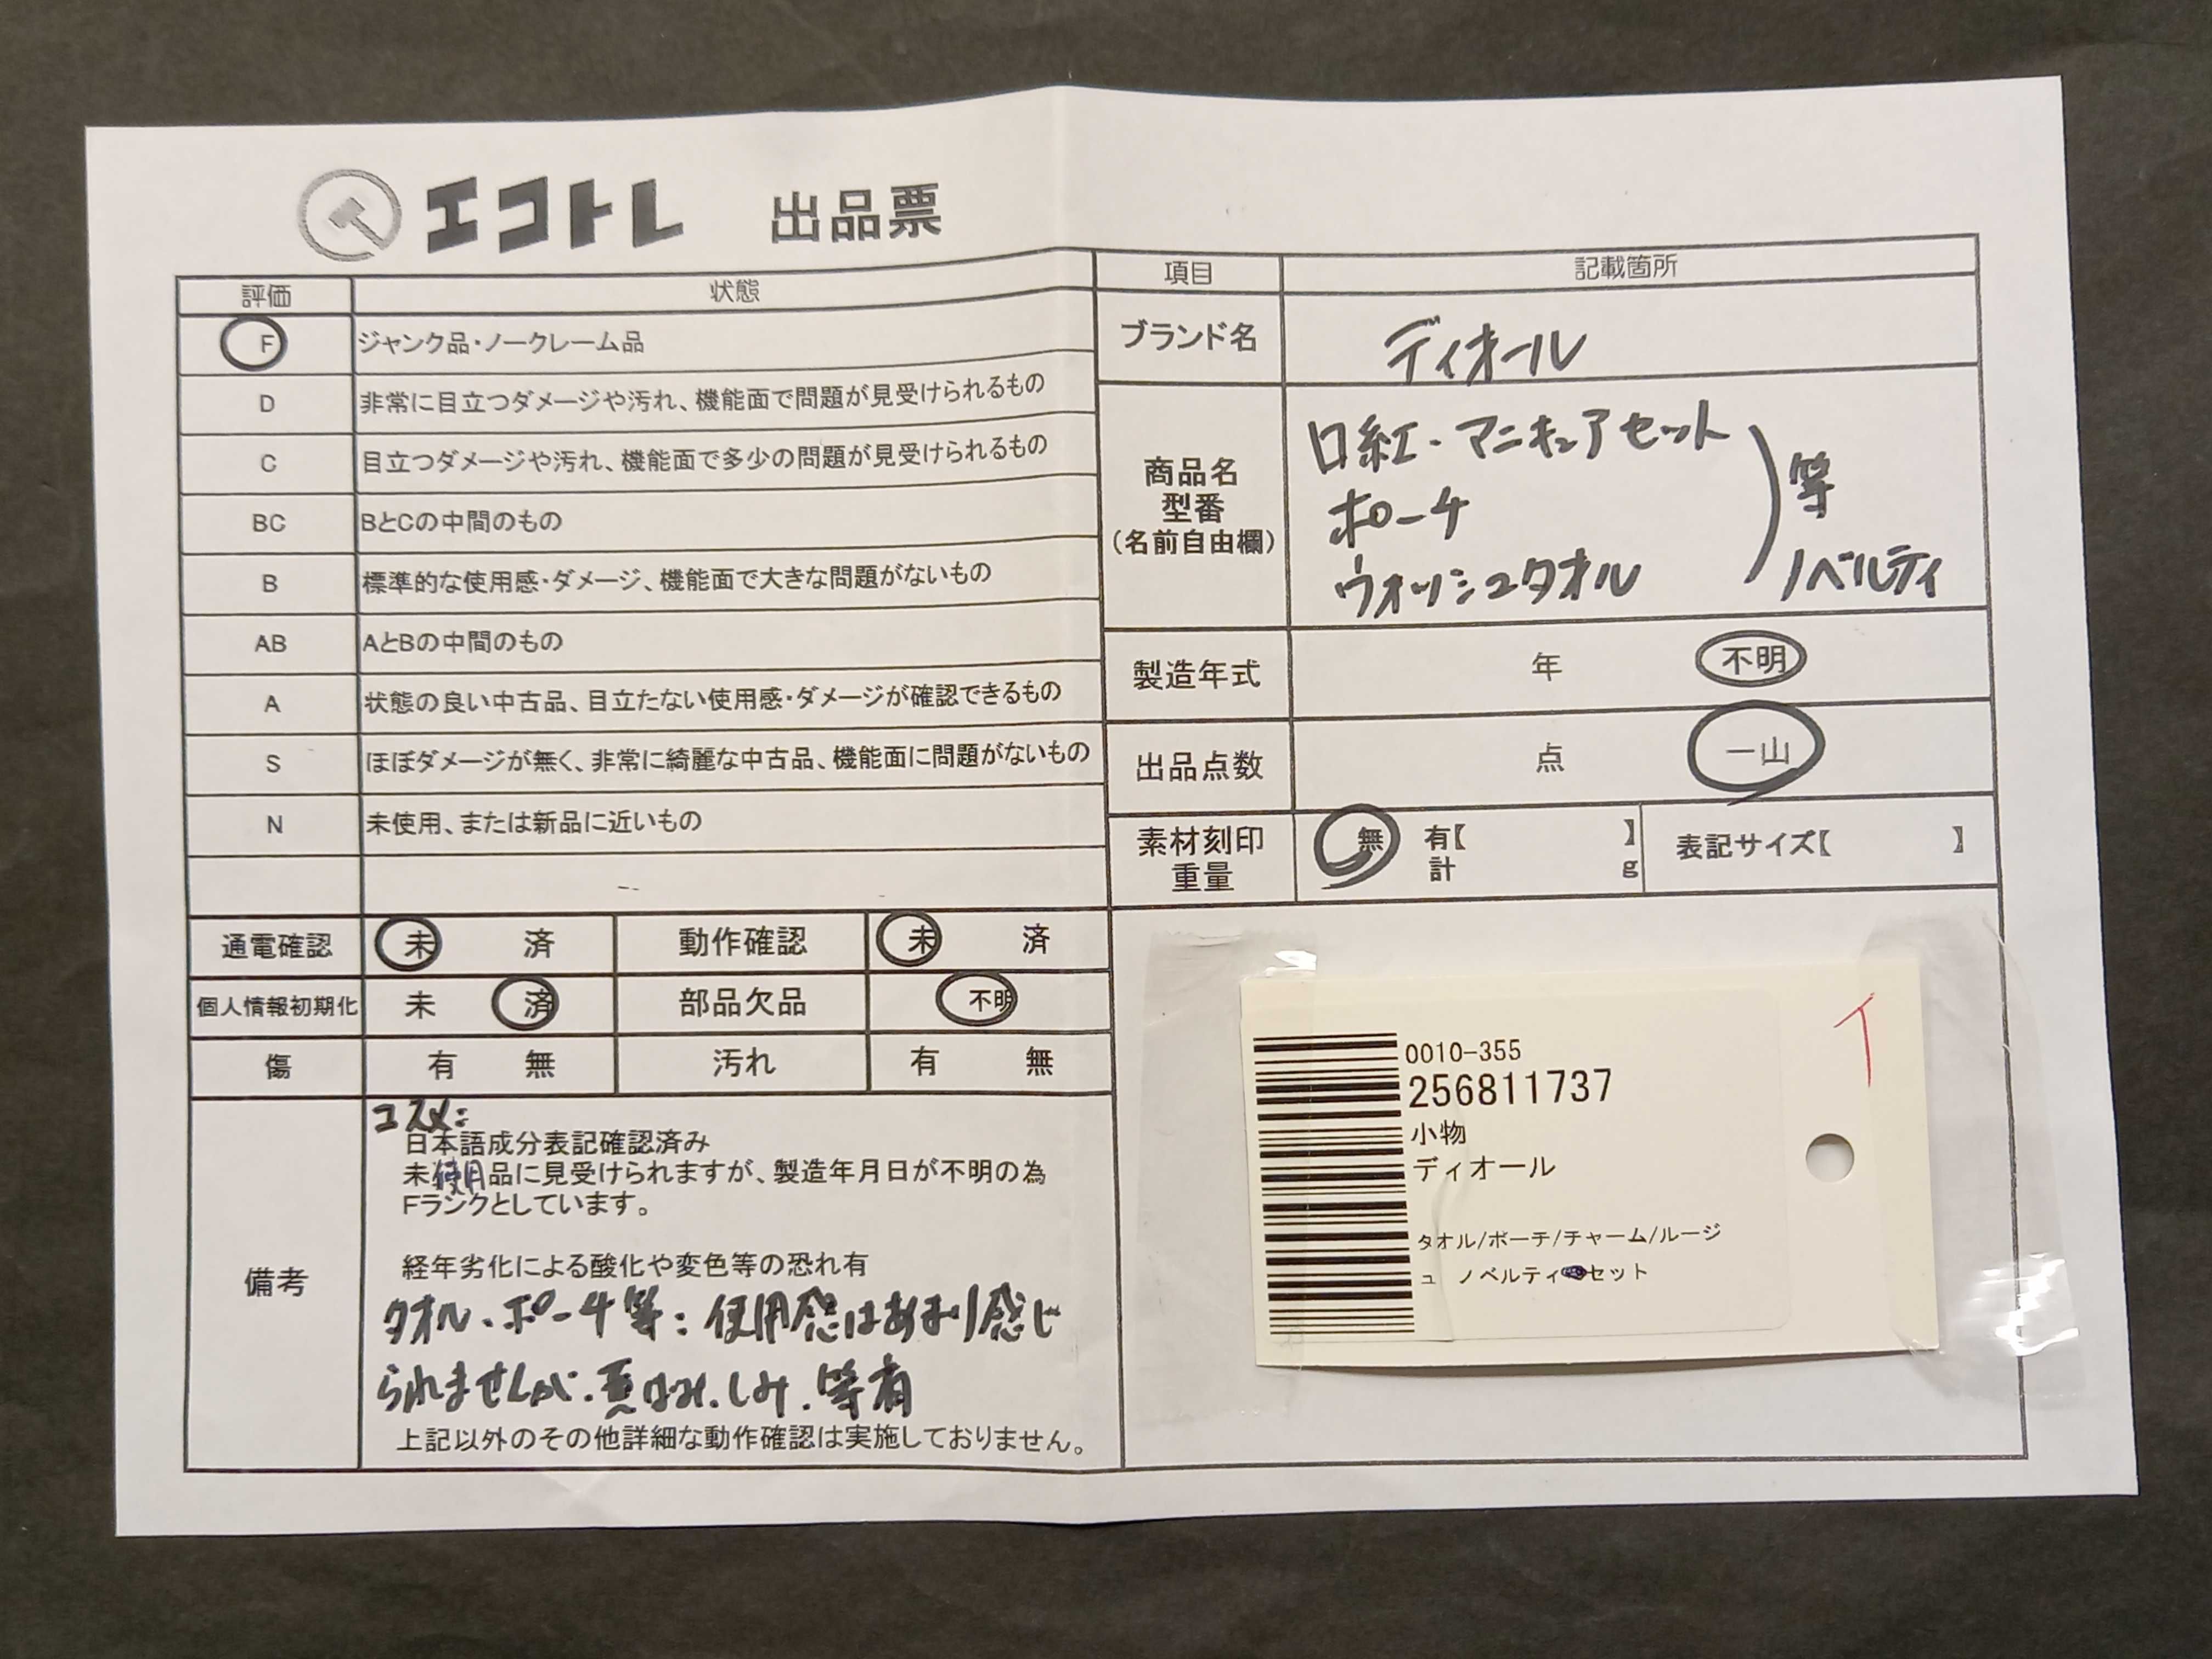 エコトレ 出品票
評価 状態
F ジャンク品・ノークレーム品
D 非常に目立つダメージや汚れ、機能面で問題が見受けられるもの
C 目立つダメージや汚れ、機能面で多少の問題が見受けられるもの
BC BとCの中間のもの
B 標準的な使用感・ダメージ、機能面で大きな問題がないもの
AB AとBの中間のもの
A 状態の良い中古品、目立たない使用感・ダメージが確認できるもの
S ほぼダメージが無く、非常に綺麗な中古品、機能面に問題がないもの
N 未使用、または新品に近いもの
通電確認 未 済 動作確認 未 済
個人情報初期化 未 済 部品欠品 不明
傷 有 無 汚れ 有 無
備考
コスメ:
日本語成分表記確認済み
未使用品に見受けられますが、製造年月日が不明の為
Fランクとしています。
経年劣化による酸化や変色等の恐れ有
タオル、ポーチ等:使用感はあまり感じ
られませんが、黄ばみ、しみ、等有
上記以外のその他詳細な動作確認は実施しておりません。
項目 記載箇所
ブランド名 ディオール
商品名
型番
(名前自由欄)
口紅・マニキュアセット
ポーチ
ウォッシュタオル
等
ノベルティ
製造年式 年 不明
出品点数 点 一山
素材刻印 無 有【 】 表記サイズ【 】
重量 計 g
0010-355
256811737
小物
ディオール
タオル/ポーチ/チャーム/ルージ
ュ ノベルティセット
イ